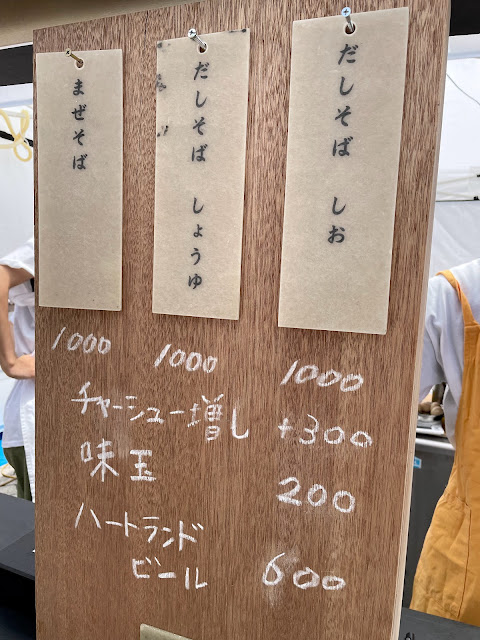 だしそば しお
だしそば しょうゆ
まぜそば
1000 1000 1000
チャーシュー増し +300
味玉 200
ハートランド
ビール 600